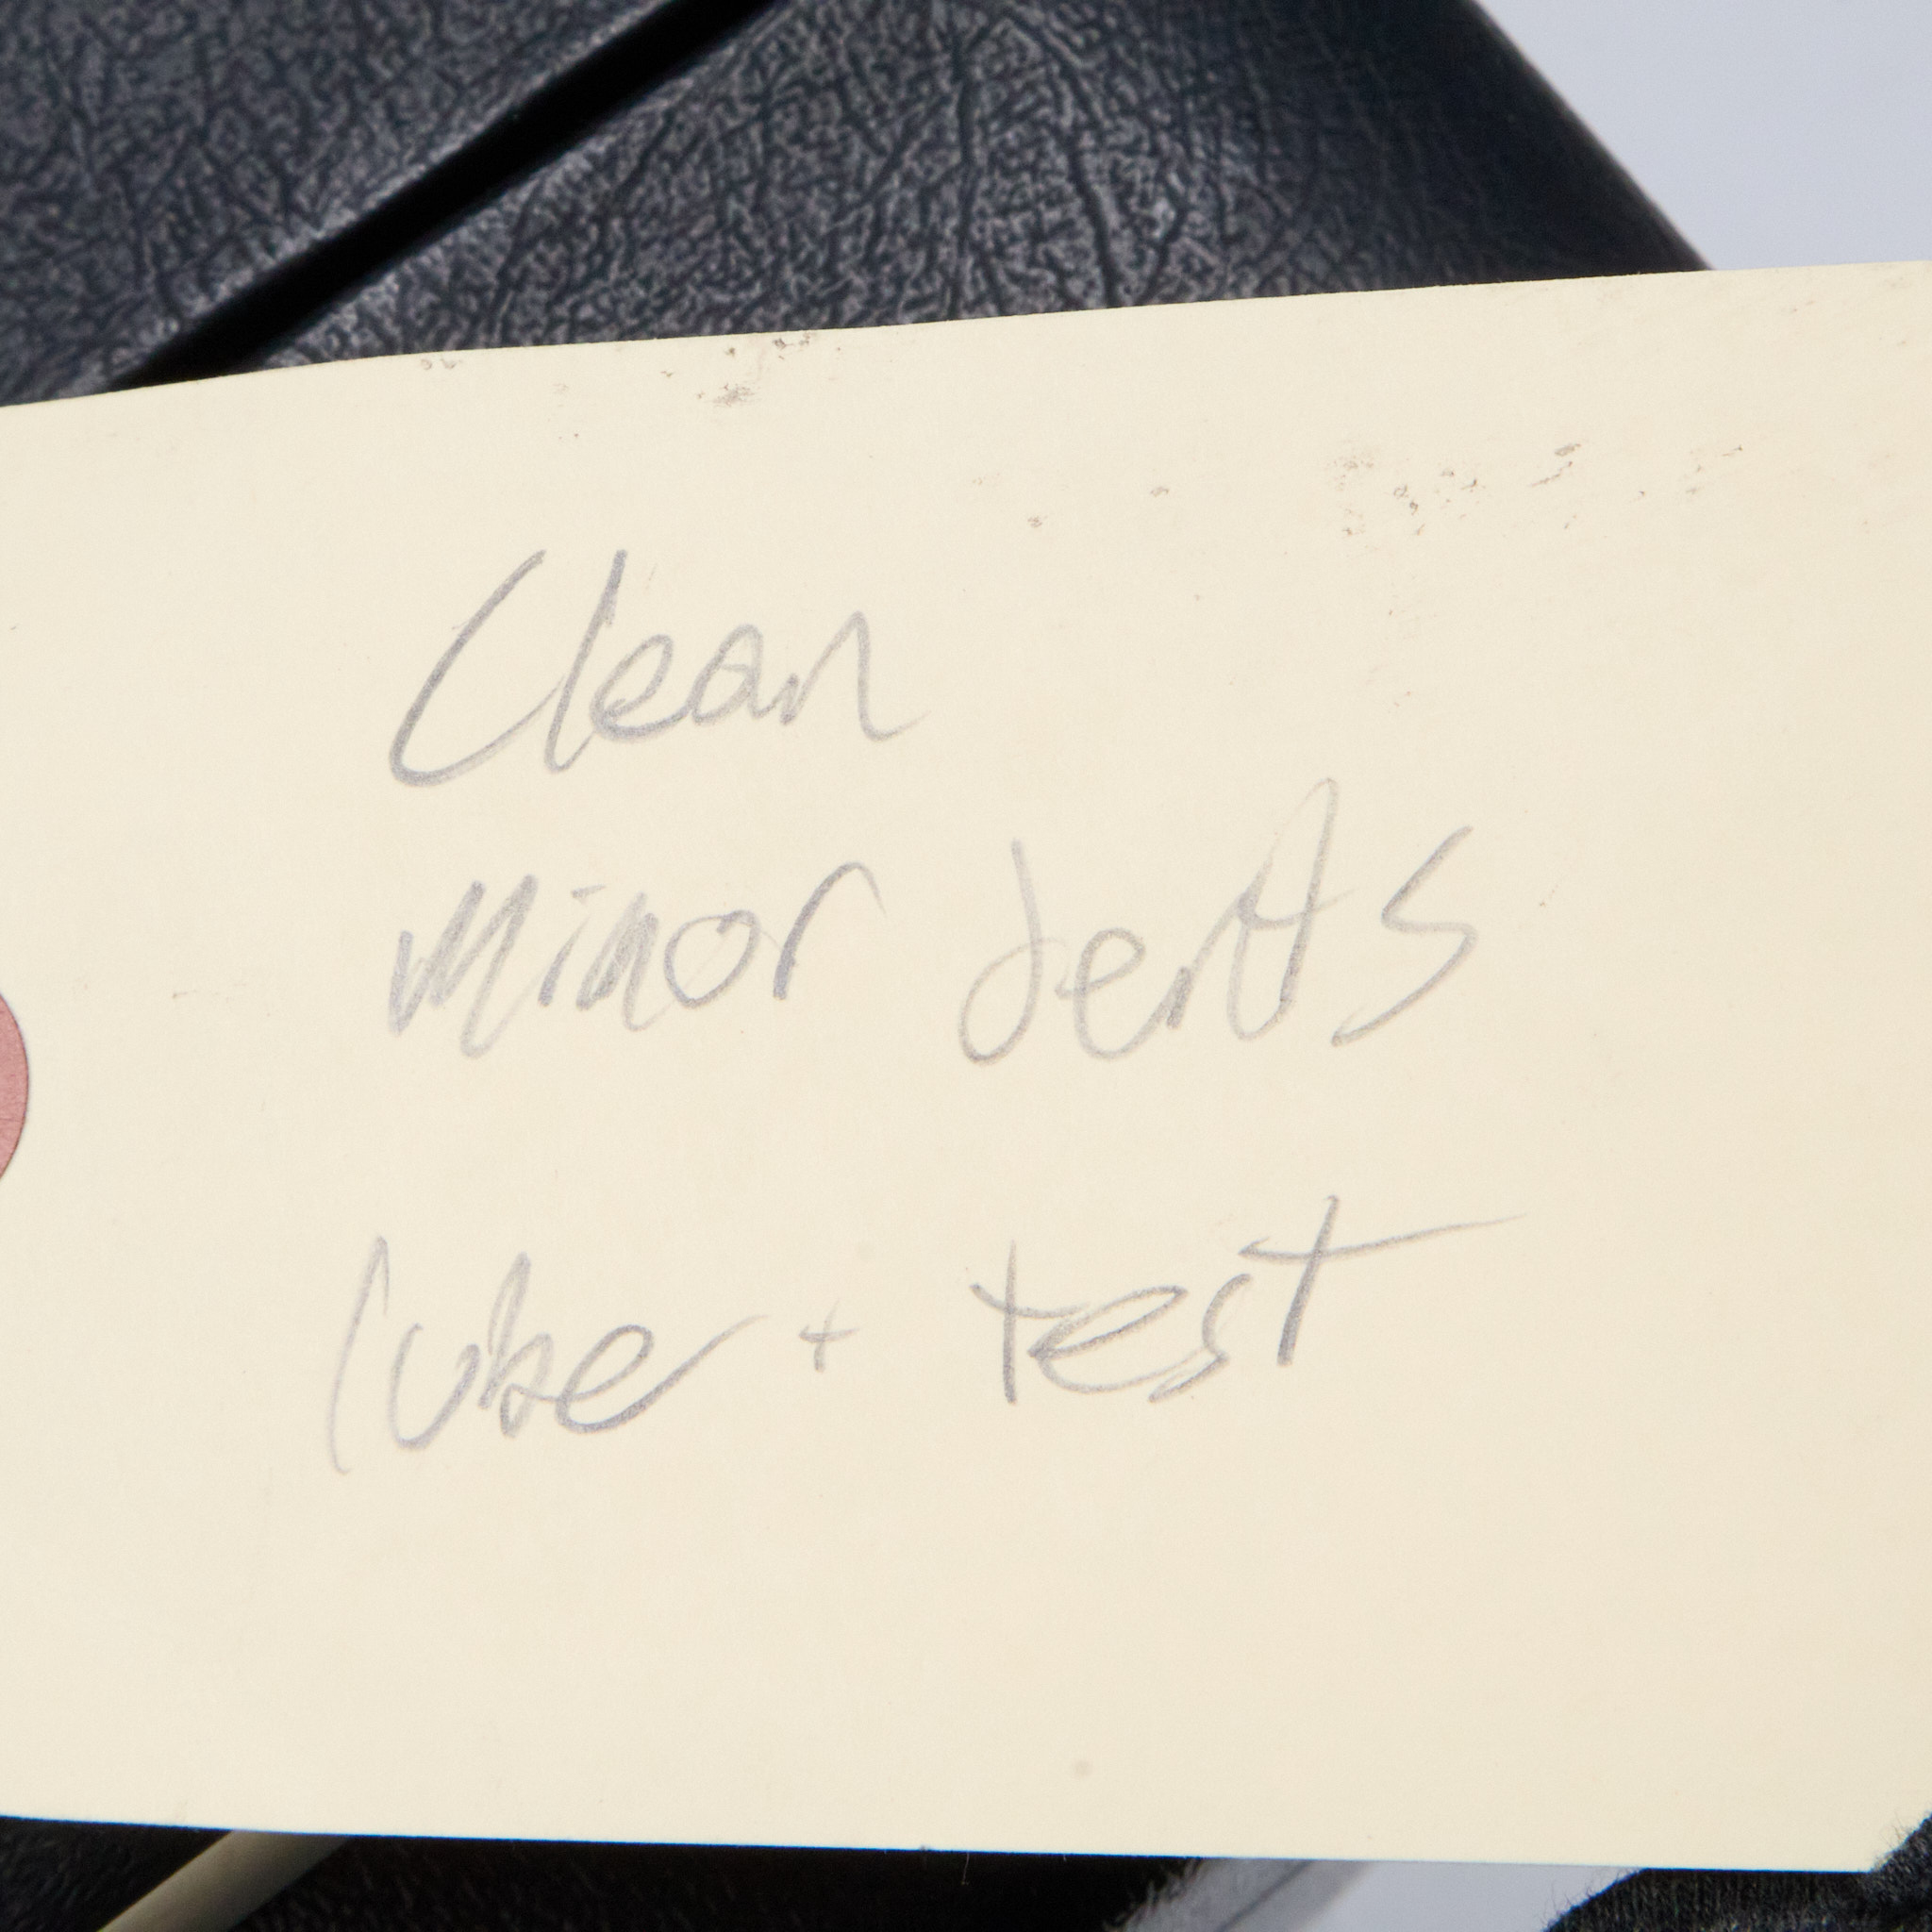 Clean
minor dents
lube + test